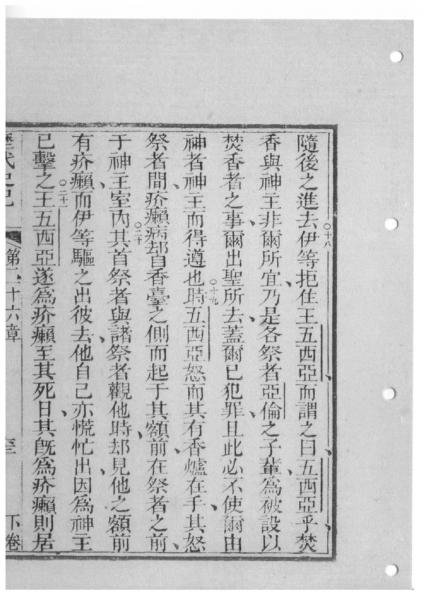 隨後之進去伊等拒住王五西亞而謂之曰五西亞乎焚
○十八
香與神主非爾所宜乃是各祭者亞倫之子輩為被設以
焚香者之事爾出聖所去蓋爾已犯罪且此必不使爾由
神者神主而得遵也時五西亞怒而其有香爐在手其怒
○十九
祭者間疥癩病却自香臺之側而起于其額前在祭者之前
于神主室內其首祭者與諸祭者觀他時却見他之額前
○二十
有疥癩而伊等驅之出彼去他自己亦慌忙出因為神主
已擊之王五西亞遂為疥癩至其死日其既為疥癩則居
○二十一
歷代史記 第二十六章 下卷